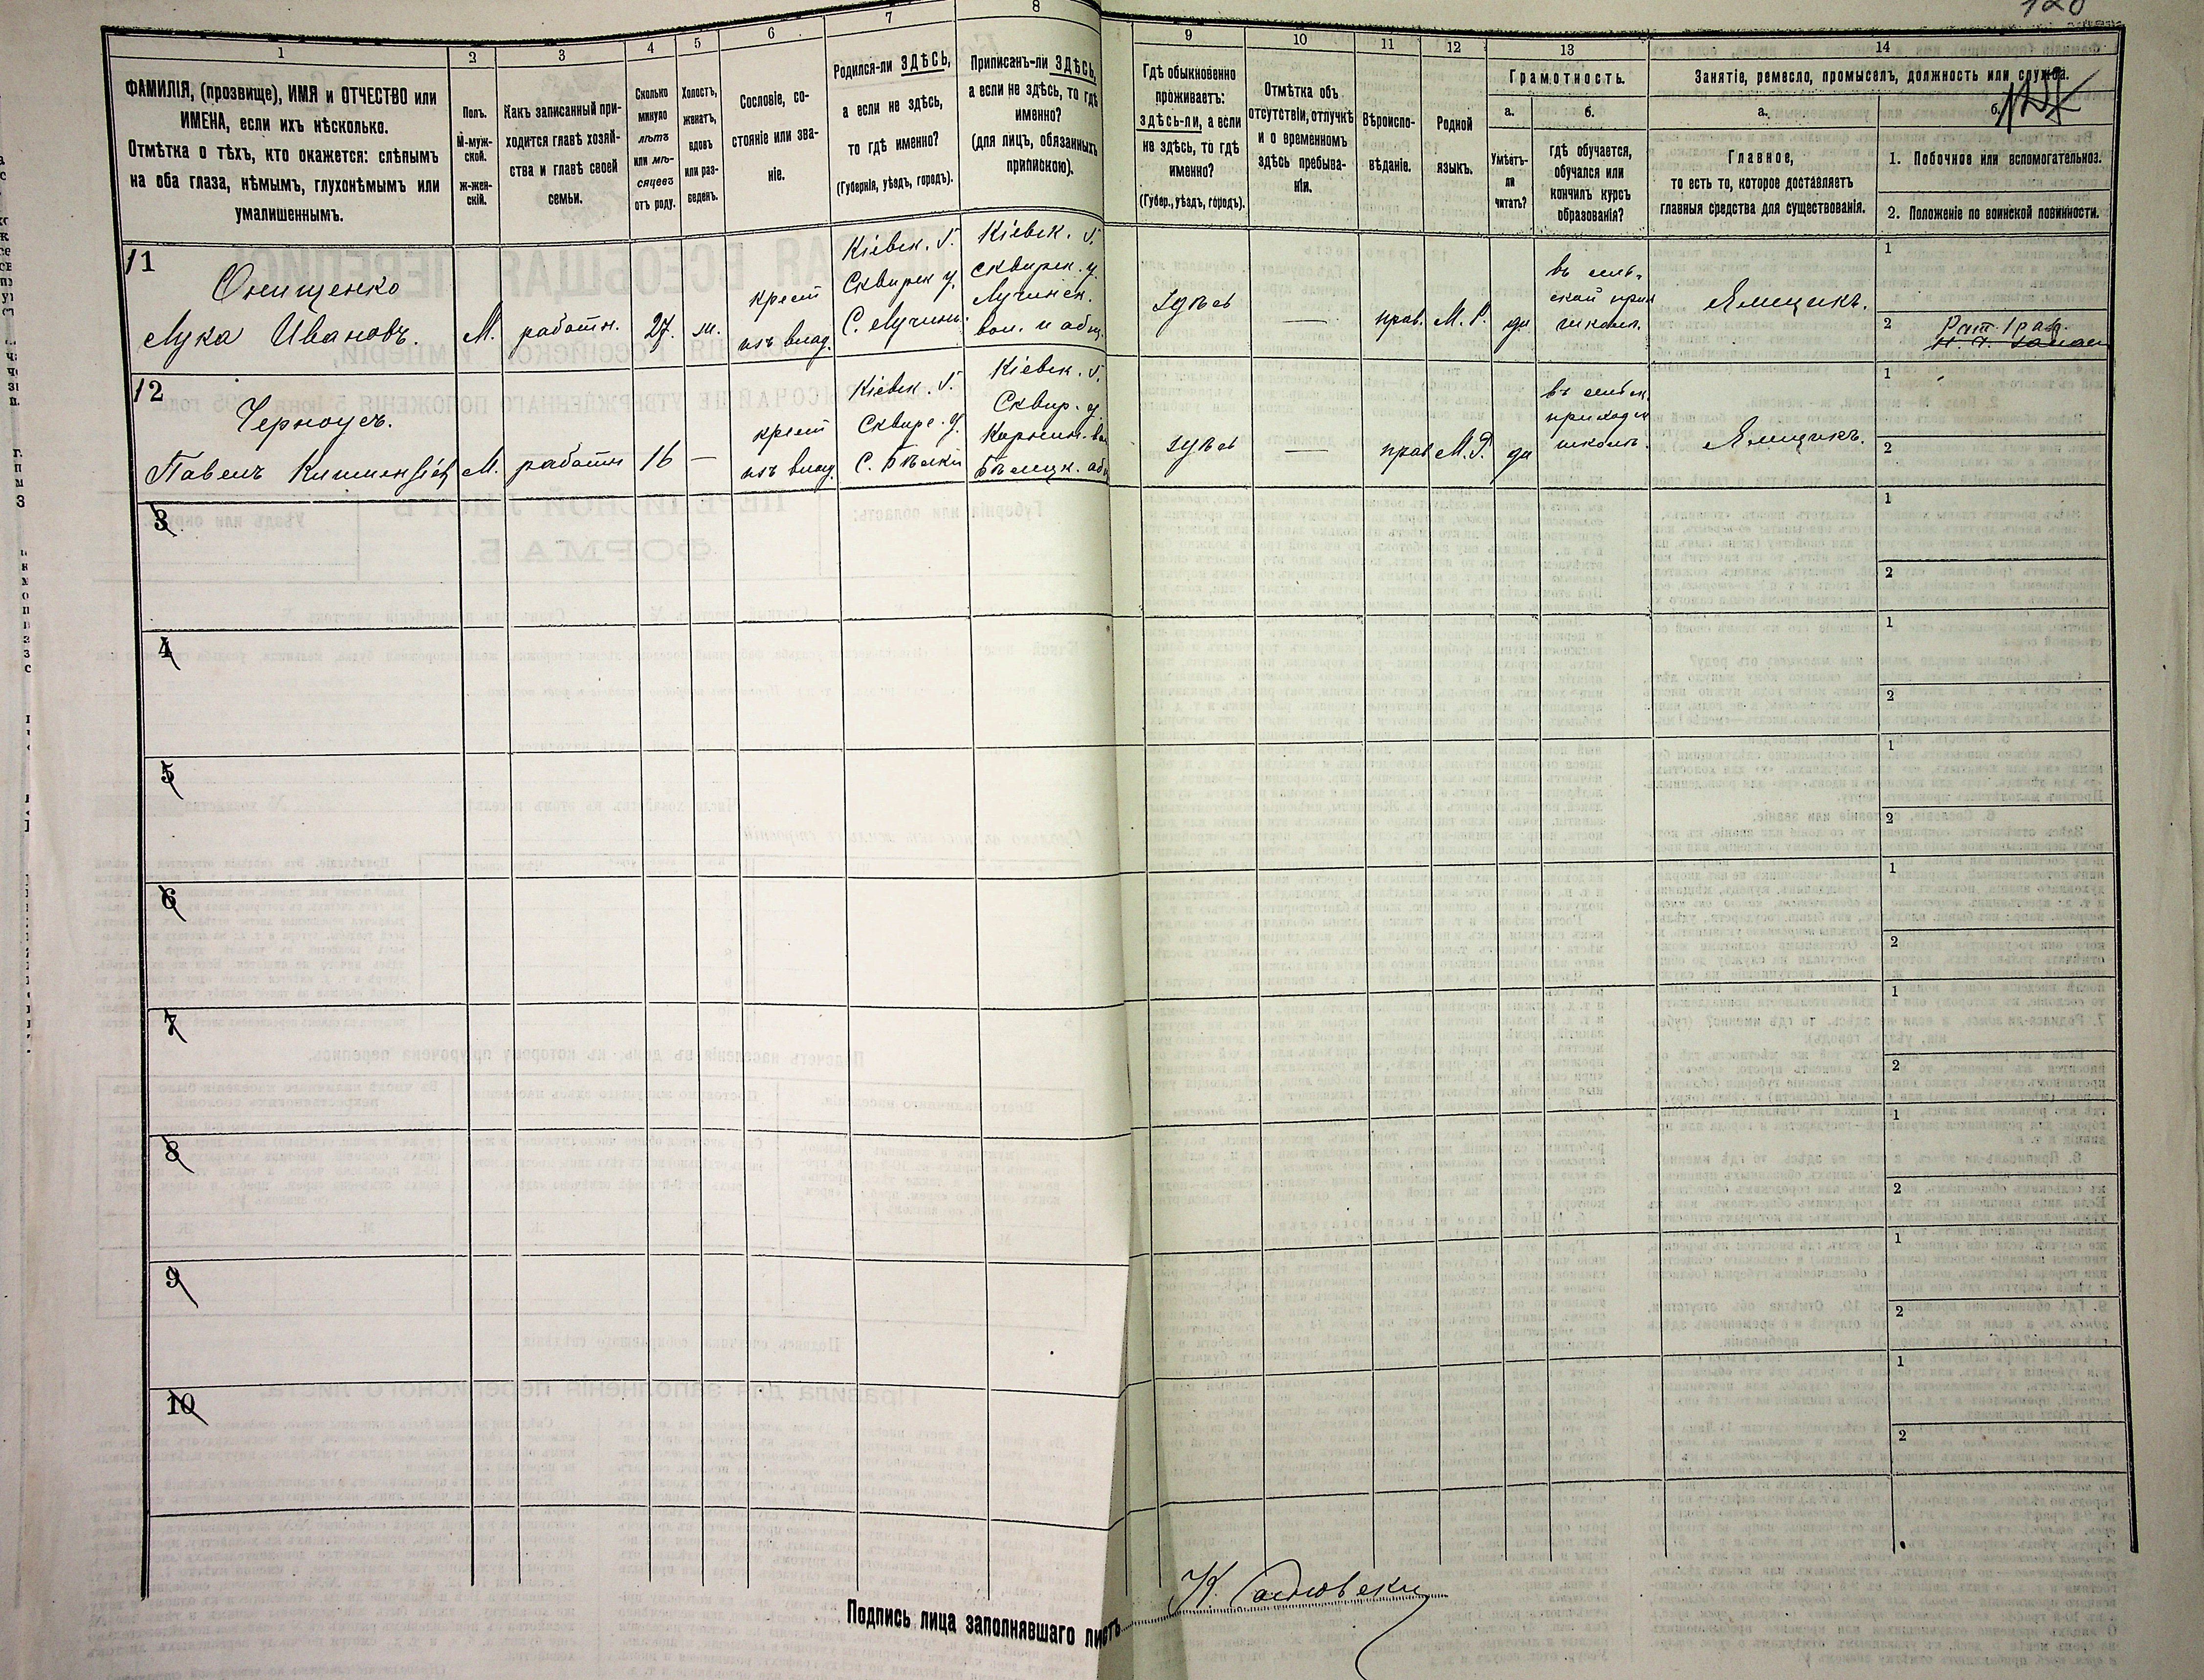 120
1
2
3
4
5
6
7
8
9
10
11
12
13
14
ФАМИЛІЯ, (прозвище), ИМЯ и ОТЧЕСТВО или
ИМЕНА, если ихъ нѣсколько.
Отмѣтка о тѣхъ, кто окажется: слѣпымъ
на оба глаза, нѣмымъ, глухонѣмымъ или
умалишеннымъ.
Полъ.
М-муж-
ской.
ж-жен-
скій.
Какъ записанный при-
ходится главѣ хозяй-
ства и главѣ своей
семьи.
Сколько
минуло
лѣтъ
или мѣ-
сяцевъ
отъ роду.
Холостъ,
женатъ,
вдовъ
или раз-
веденъ.
Сословіе, со-
стояніе или зва-
ніе.
Родился-ли ЗДѢСЬ,
а если не здѣсь,
то гдѣ именно?
(Губернія, уѣздъ, городъ).
Приписанъ-ли ЗДѢСЬ,
а если не здѣсь, то гдѣ
именно?
(для лицъ, обязанныхъ
припискою).
Гдѣ обыкновенно
проживаетъ:
здѣсь-ли, а если
не здѣсь, то гдѣ
именно?
(Губер., уѣздъ, городъ).
Отмѣтка объ
отсутствіи, отлучкѣ
и о временномъ
здѣсь пребыва-
ніи.
Вѣроиспо-
вѣданіе.
Родной
языкъ.
Грамотность.
а.
Умѣетъ-
ли
читать?
б.
гдѣ обучается,
обучался или
кончилъ курсъ
образованія?
Занятіе, ремесло, промыселъ, должность или служба.
а.
Главное,
то есть то, которое доставляетъ
главныя средства для существованія.
б.
1. Побочное или вспомогательное.
2. Положеніе по воинской повинности.
11
Онищенко
Лука Ивановъ.
М.
работн.
27.
крест
изъ влад.
Кіевск. г.
Сквирск у.
С. Лучинъ.
Кіевск. г.
Сквирск. у.
Лучинск.
вол. и общ.
здѣсь
—
прав.
М. Р.
да
въ сель-
ской при
школѣ.
Ямщикъ.
1
2
Рат. 1 раз.
12
Черноусъ.
Павелъ
М.
работн
16
—
крест
изъ влад.
Кіевск. г.
Сквирс. у.
С. Бѣлки
Кіевск. г.
Сквир. у.
здѣсь
—
прав
М. Р.
да
въ сельск.
приходск
школѣ.
Ямщикъ.
1
2
3
1
2
4
1
2
5
1
2
6
1
2
7
1
2
8
1
2
9
1
2
10
1
2
Подпись лица заполнявшаго листъ